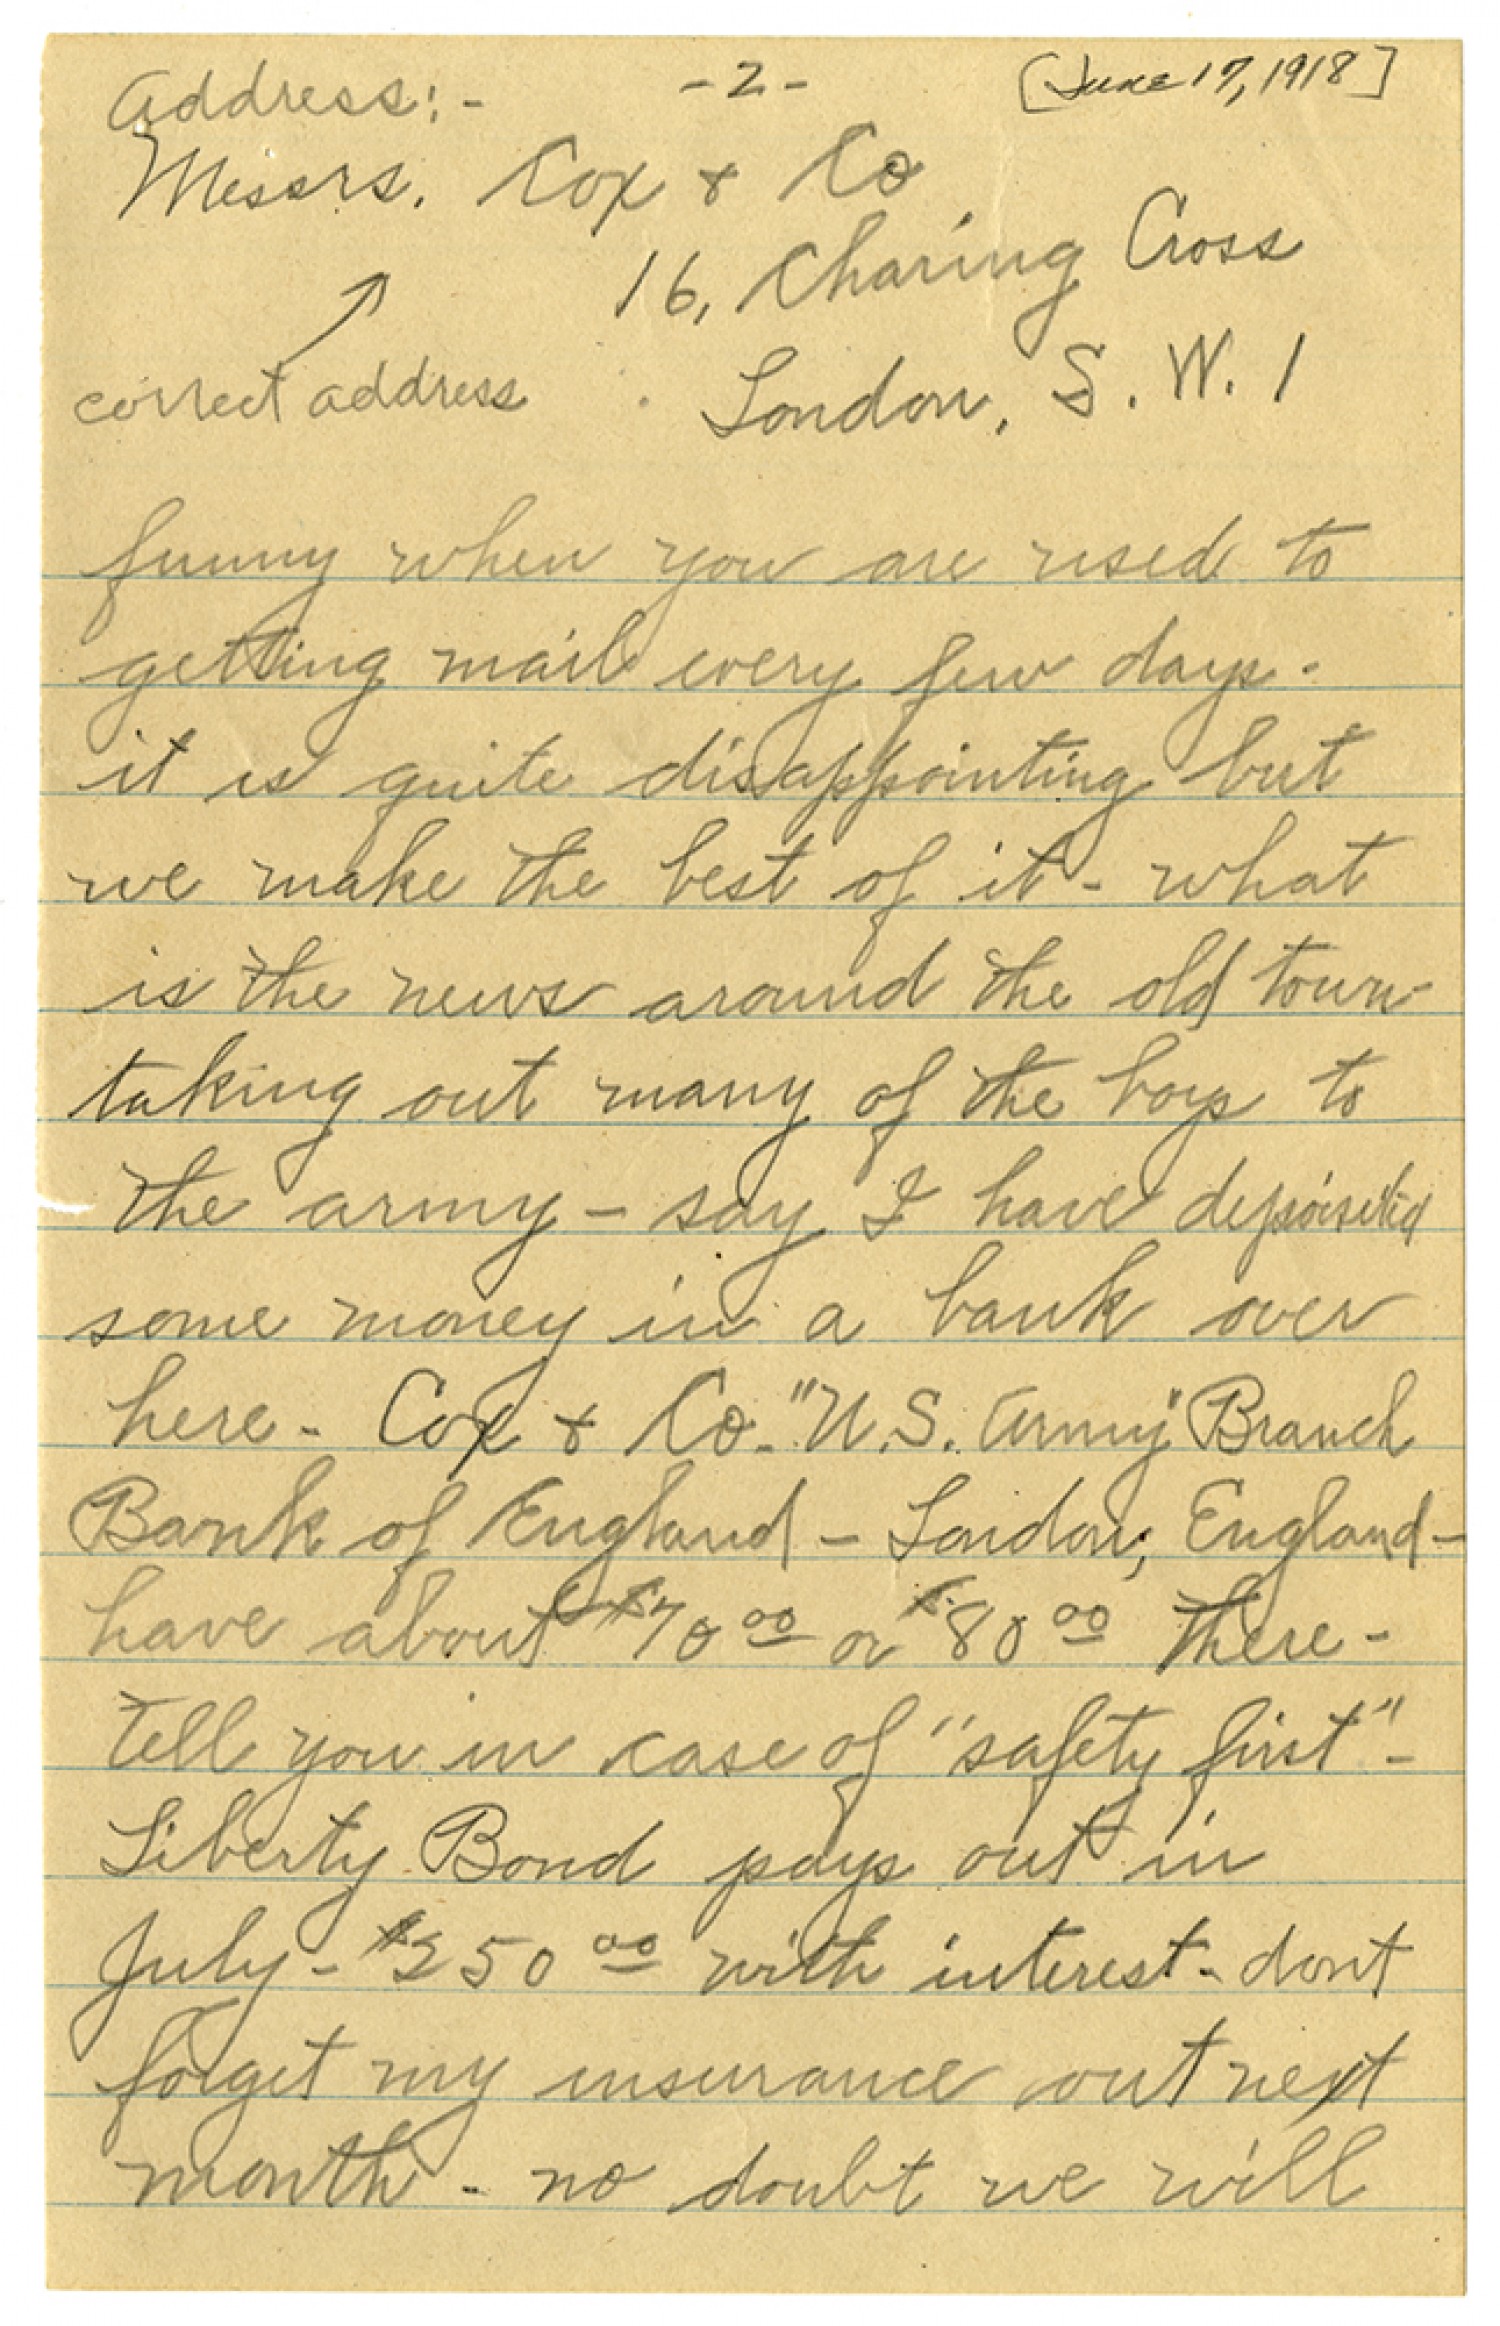 Address:- -2- [June 17, 1918]
Messrs. Cox & Co
16, Charing Cross
correct address London, S. W. 1
funny when you are used to
getting mail every few days -
it is quite disappointing but
we make the best of it - what
is the news around the old town -
taking out many of the boys to
the army - say I have deposited
some money in a bank over
here - Cox & Co. "U.S. Army" Branch
Bank of England - London, England -
have about $70 00 or $80 00 there -
tell you in case of "safety first" -
Liberty Bond pays out in
July - $250 00 with interest - dont
forget my insurance out next
month - no doubt we will